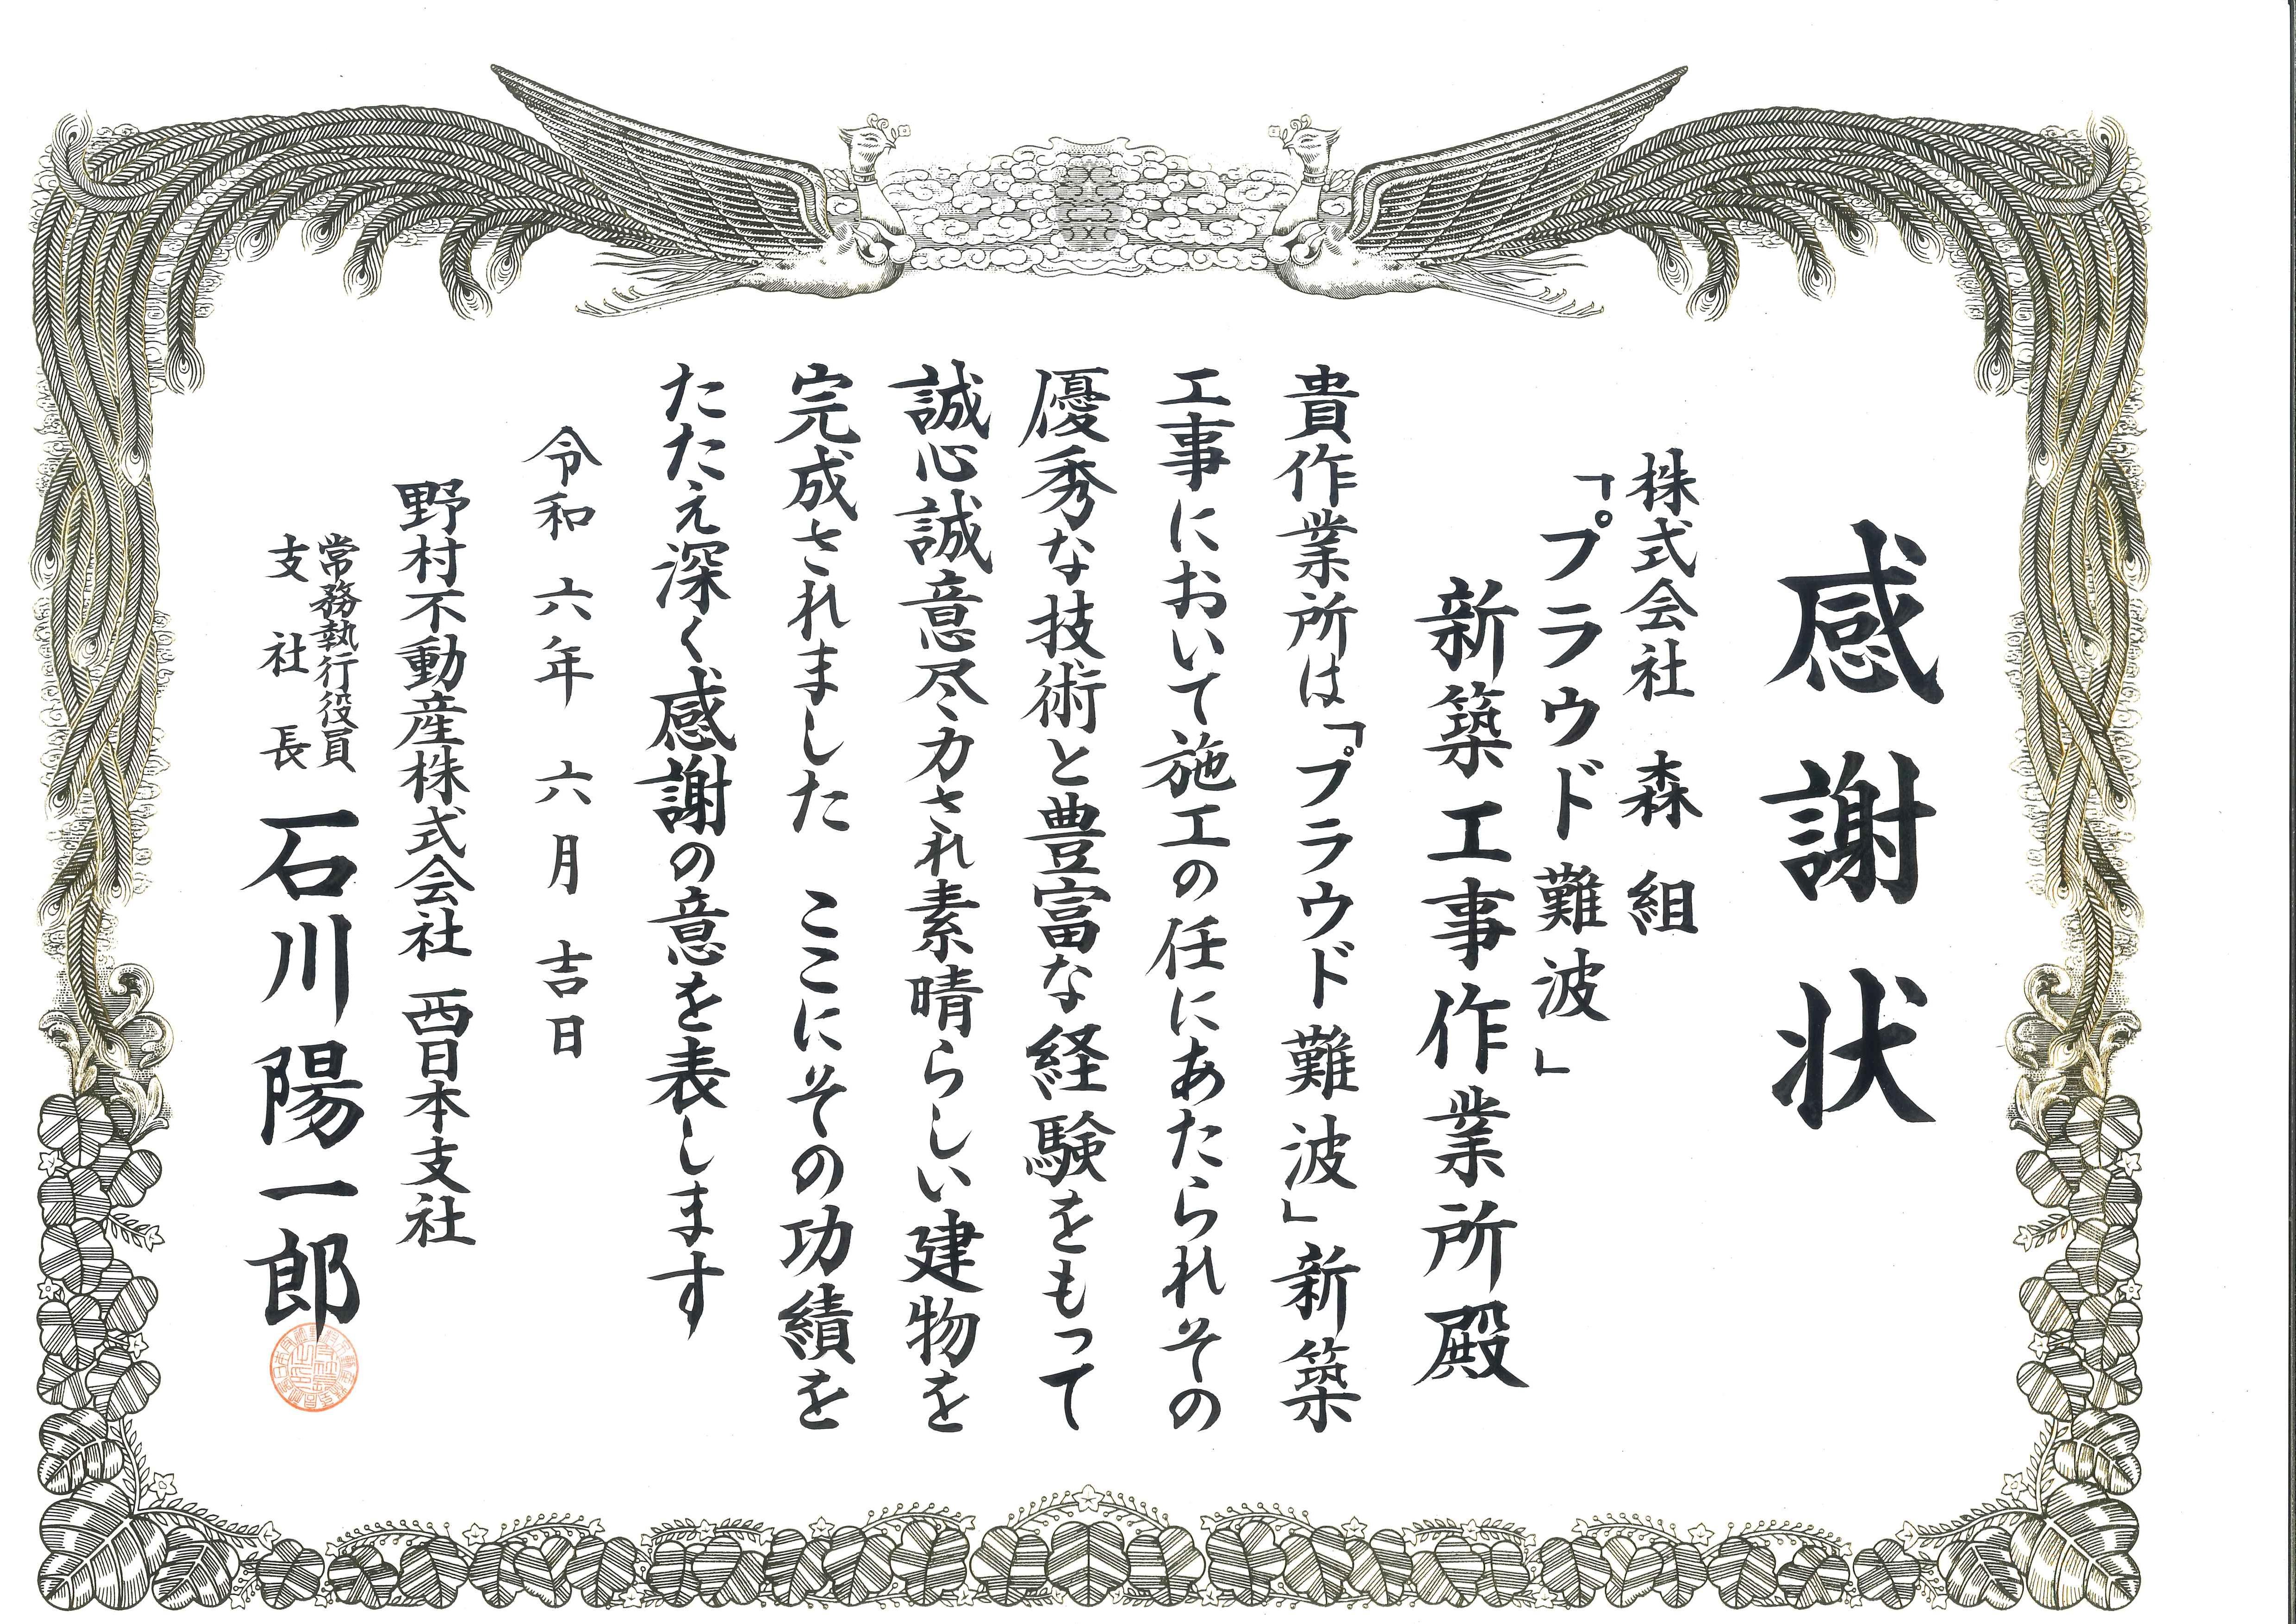 感謝状
株式会社 森組
「プラウド難波」
新築工事作業所殿
貴作業所は「プラウド難波」新築
工事において施工の任にあたられその
優秀な技術と豊富な経験をもって
誠心誠意尽力され素晴らしい建物を
完成されました ここにその功績を
たたえ深く感謝の意を表します
令和 六年 六月 吉日
野村不動産株式会社 西日本支社
常務執行役員
支社長
石川陽一郎